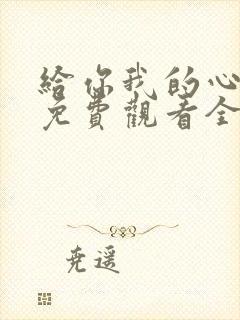 給你我的心
免費觀看全
尭遥